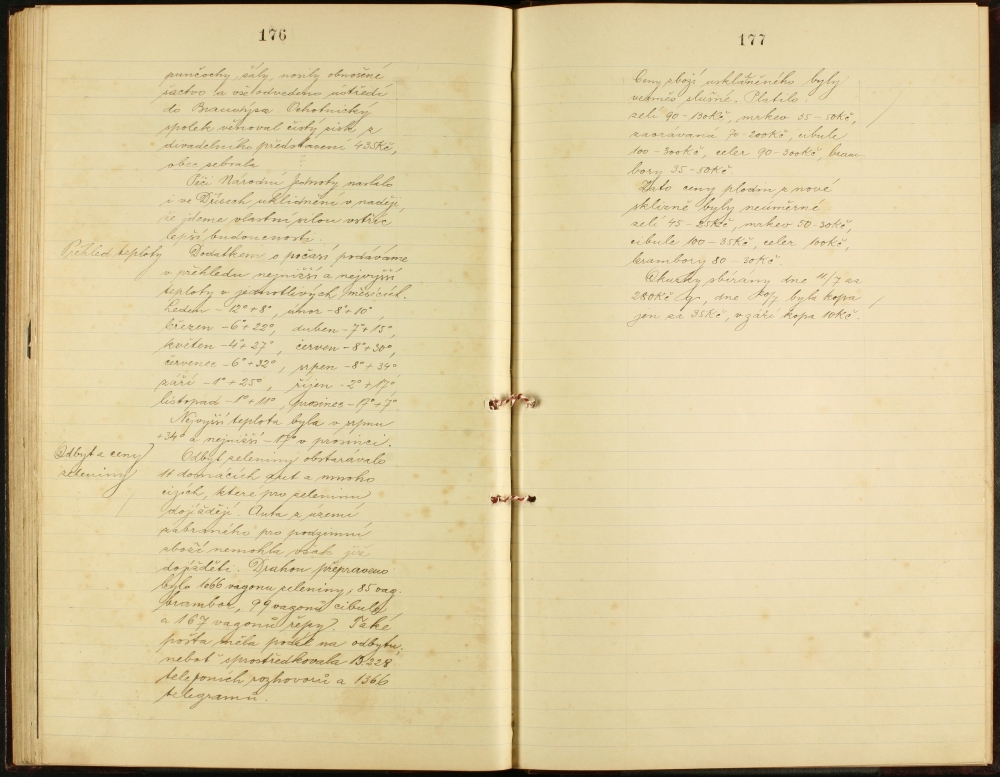 176
punčochy, šály, vesty obnošené
šactvo a vše odvedeno ústředí
do Brandýsa. Ochotnický
spolek věnoval čistý zisk z
divadelního představení 435Kč,
obec sebrala
Péčí Národní Jednoty nastalo
i ve Dřísech uklidnění v naději,
že jdeme vlastní silou vstříc
lepší budoucnosti.
Přehled teploty
Dodatkem o počasí podáváme
v přehledu nejnižší a nejvyšší
teploty v jednotlivých měsících.
Leden -12°+8°, únor -8°+10°,
březen -6°+22°, duben -7°+15°,
květen -4°+27°, červen -8°+30°,
červenec -6°+32°, srpen -8°+34°
září -1°+25°, říjen -2°+17°
listopad -1°+11°, prosinec -17°+7°.
Nejvyšší teplota byla v srpnu
+34° a nejnižší -17° v prosinci.
Odbyt a ceny
zeleniny
Odbyt zeleniny obstarávalo
11 domácích aut a mnoho
cizích, které pro zeleninu
dojíždějí. Auta z území
zabraného pro podzimní
zboží nemohla však již
dojížděti. Drahou přepraveno
bylo 1066 vagonů zeleniny, 85 vag.
brambor, 99 vagonů cibule
a 167 vagonů řepy. Také
pošta měla podíl na odbytu,
neboť sprostředkovala 15228
telefoních rozhovorů a 1366
telegramů.
177
Ceny zboží uskláněného byly
vesměs slušné. Platilo:
zelí 90-130Kč, mrkev 35-50Kč,
zaorávaná 70-200Kč, cibule
100-300Kč, celer 90-300Kč, bram-
bory 35-50Kč
Zato ceny plodin z nové
sklizně byly neúměrné
zelí 45-25Kč, mrkev 50-30Kč,
cibule 100-35Kč, celer 100Kč,
brambory 80-30Kč.
Okurky sbírány dne 11/7 za
280Kč q, dne 20/7 byla kopa
jen za 35Kč, v září kopa 10Kč.